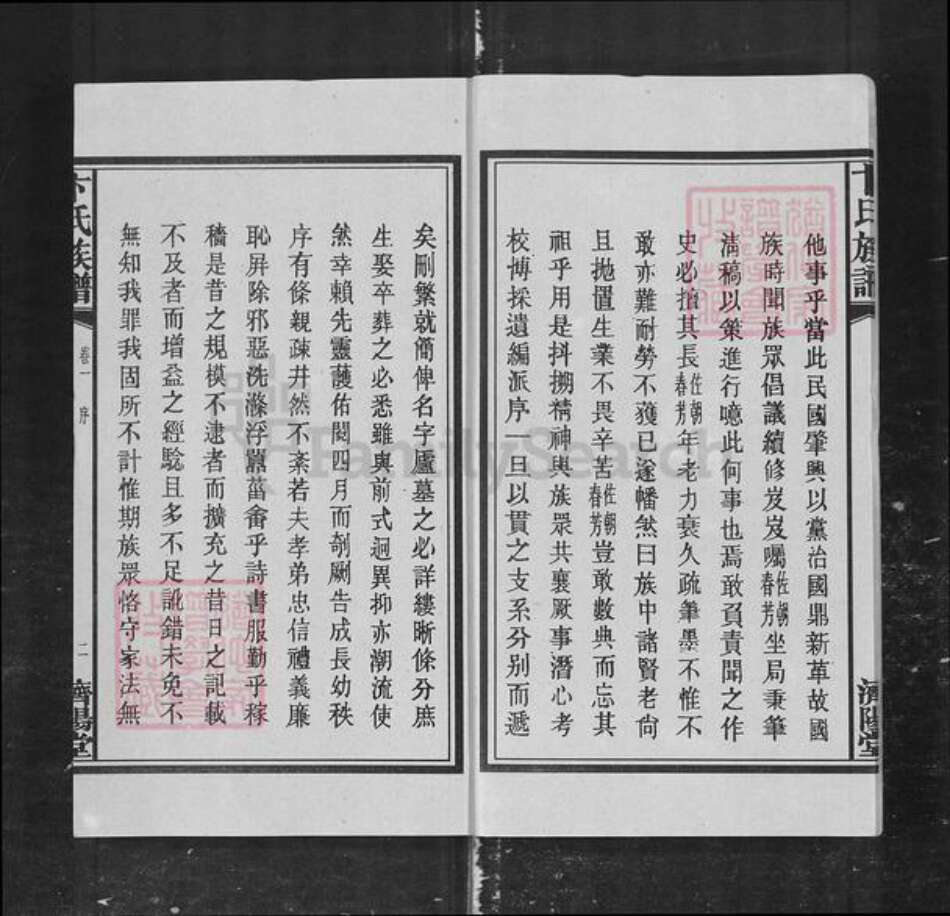 卞氏族譜
濟陽堂
他事乎當此民國肇興以黨治國鼎新革故國
族時聞族眾倡議續修岌岌囑佐朝春芳坐局秉筆
淸稿以策進行噫此何事也焉敢負責聞之作
史必擅其長佐朝春芳年老力衰久疏筆墨不惟不
敢亦難耐勞不獲已遂幡然曰族中諸賢老尙
且拋置生業不畏辛苦佐朝春芳豈敢數典而忘其
祖乎用是抖擻精神與族眾共襄厥事潛心考
校博採遺編派序一旦以貫之支系分别而遞
矣刪繁就簡俾名字廬墓之必詳縷晰條分庶
生娶卒葬之必悉雖與前式迥異抑亦潮流使
然幸賴先靈護佑閱四月而剞劂告成長幼秩
序有條親疎井然不紊若夫孝弟忠信禮義廉
恥屏除邪惡洗滌浮囂菑畬乎詩書服勤乎稼
穡是昔之規模不逮者而擴充之昔日之記載
不及者而增益之經驗且多不足訛錯未免不
無知我罪我固所不計惟期族眾恪守家法無
卞氏族譜
卷一
序
二
濟陽堂
FamilySearch